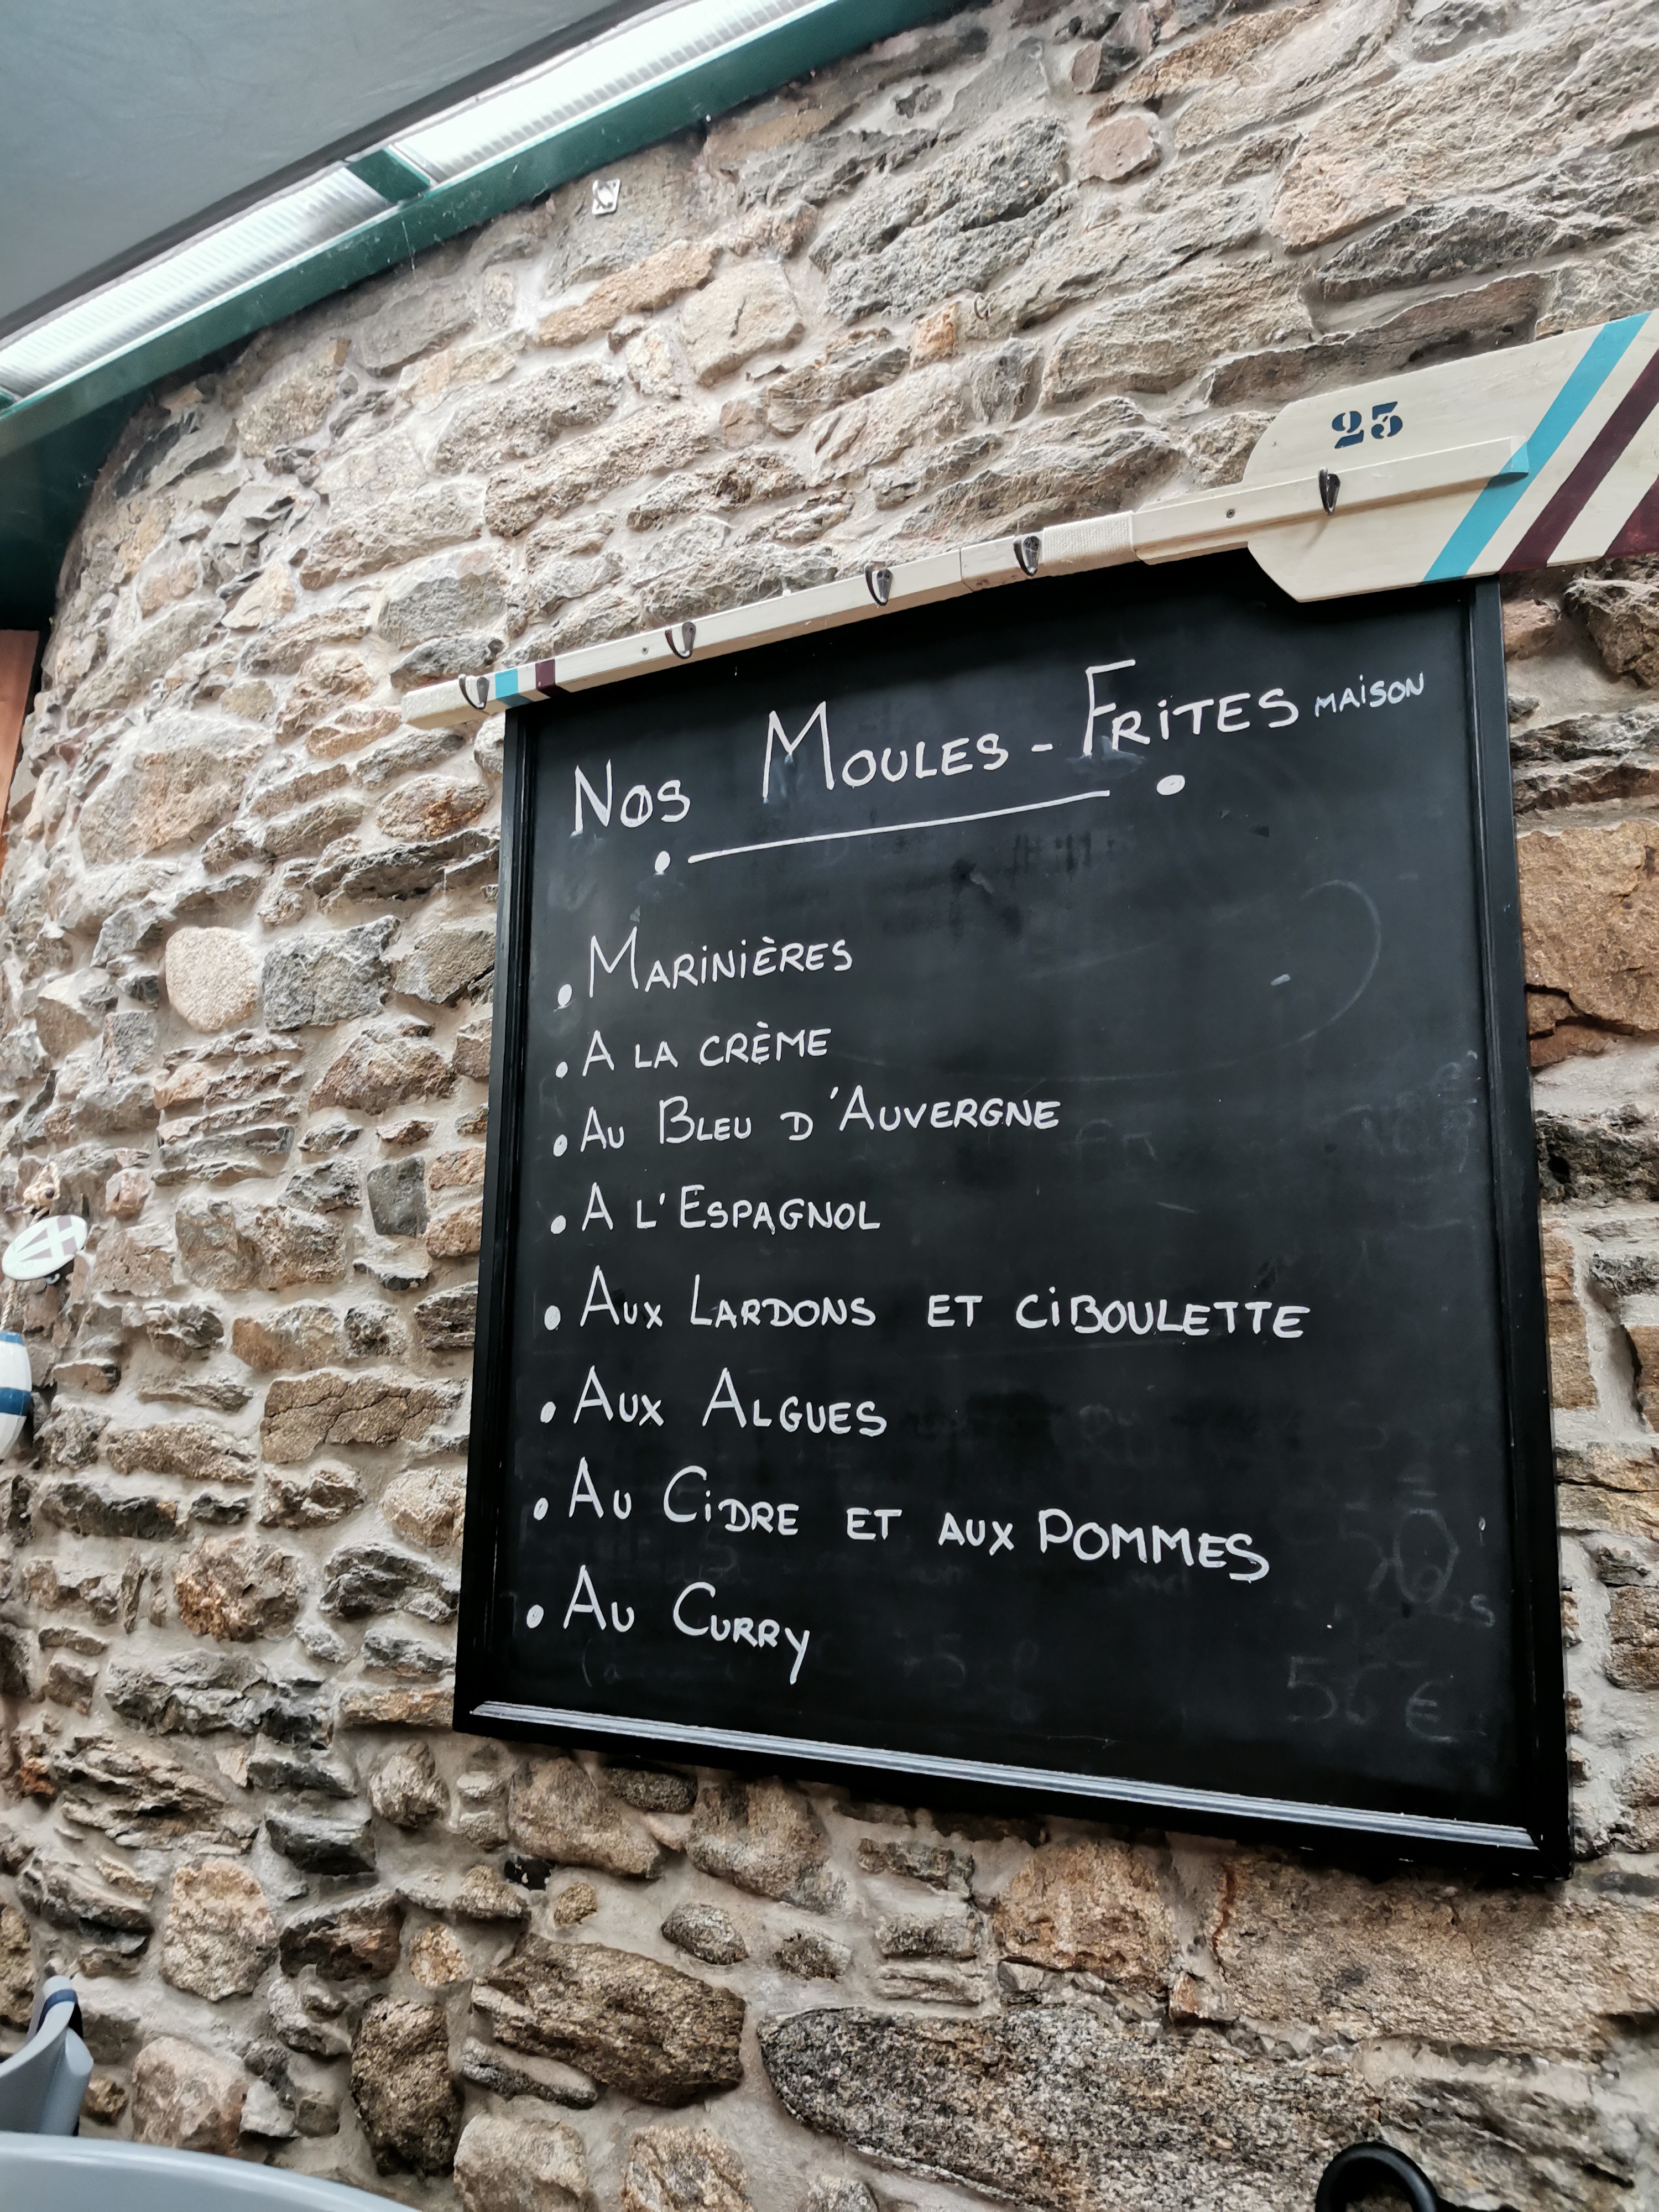 25
Nos Moules - Frites MAISON
• Marinières
• A LA CRÈME
• Au Bleu d'Auvergne
• A l'Espagnol
• Aux Lardons ET CIBOULETTE
• Aux Algues
• Au Cidre ET AUX POMMES
• Au Curry